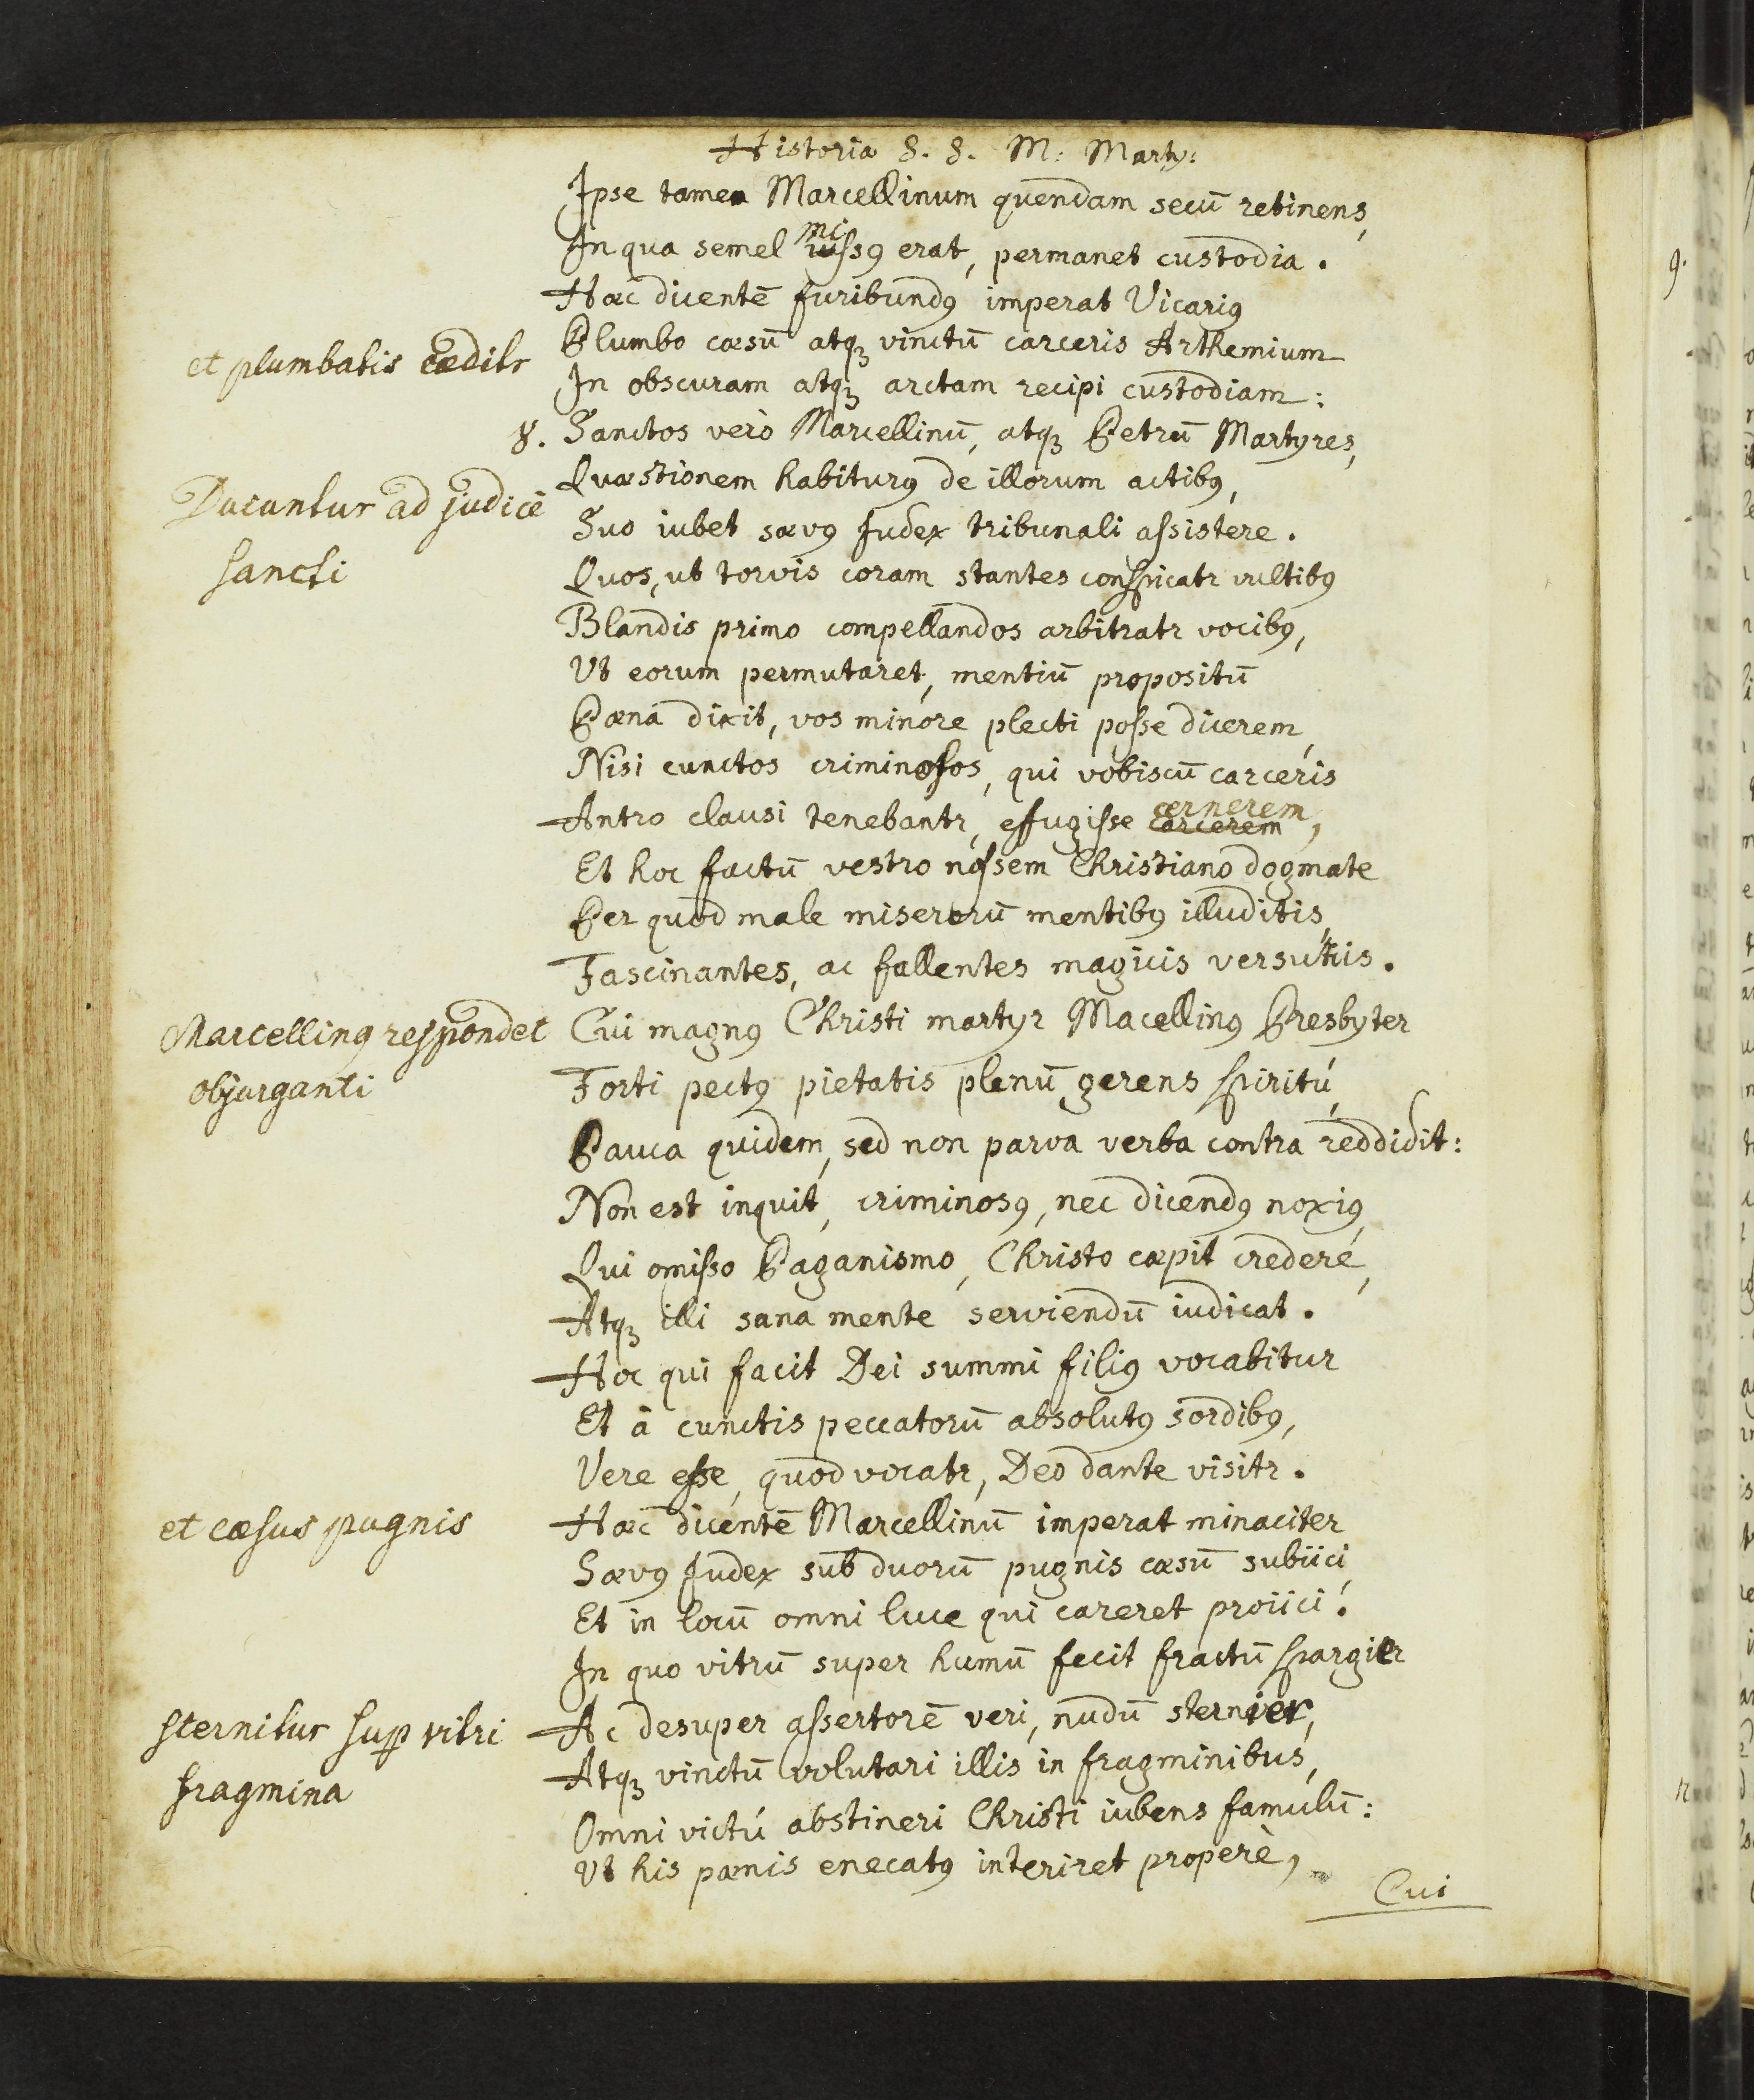 Historia S. S. M: Marty:
Ipse tamen Marcellinum quendam secū retinens,
In qua semel missꝰ erat, permanet custodia.
Hæc dicentē furibundꝰ imperat Vicariꝰ
et plumbatis cæditr
Plumbo cæsū atqꝫ vinctū carceris Arthemium
In obscuram atqꝫ arctam recipi custodiam:
8. Sanctos verò Marcellinū, atqꝫ Petrū Martyres,
Ducuntur ad judicē
sancti
Quæstionem habiturꝰ de illorum actibꝰ,
Suo iubet sævꝰ Judex tribunali assistere.
Quos, ut torvis coram stantes conspicatr vultibꝰ
Blandis primo compellandos arbitratr vocibꝰ,
Ut eorum permutaret, mentiū propositū
Pæna dixit, vos minore plecti posse dicerem,
Nisi cunctos criminosos, qui vobiscū carceris
Antro clausi tenebantr, effugisse carcerem cernerem,
Et hoc factū vestro nossem Christiano dogmate
Per quod male miserorū mentibꝰ illuditis,
Fascinantes, ac fallentes magicis versutiis.
Marcellinꝰ respondet
objurganti
Cui magnꝰ Christi martyr Macellinꝰ Presbyter
Forti pectꝰ pietatis plenū gerens spiritú,
Pauca quidem, sed non parva verba contra reddidit:
Non est inquit, criminosꝰ, nec dicendꝰ noxiꝰ,
Qui omisso Paganismo, Christo cæpit credere,
Atqꝫ illi sana mente serviendū iudicat.
Hoc qui facit Dei summi filiꝰ vocabitur
Et à cunctis peccatorū absolutꝰ sordibꝰ,
Vere esse, quod vocatr, Deo dante visitr.
et cæsus pugnis
Hæc dicentē Marcellinū imperat minaciter
Sævꝰ Judex sub duorū pugnis cæsū subiici
Et in locū omni luce qui careret proiici!
In quo vitrū super humū fecit fractū spargier
sternitur suꝑ vitri
fragmina
Ac desuper assertorē veri, nudū sternier,
Atqꝫ vinctū volutari illis in fragminibus,
Omni victú abstineri Christi iubens famulū:
Ut his pænis enecatꝰ interiret properè,
Cui